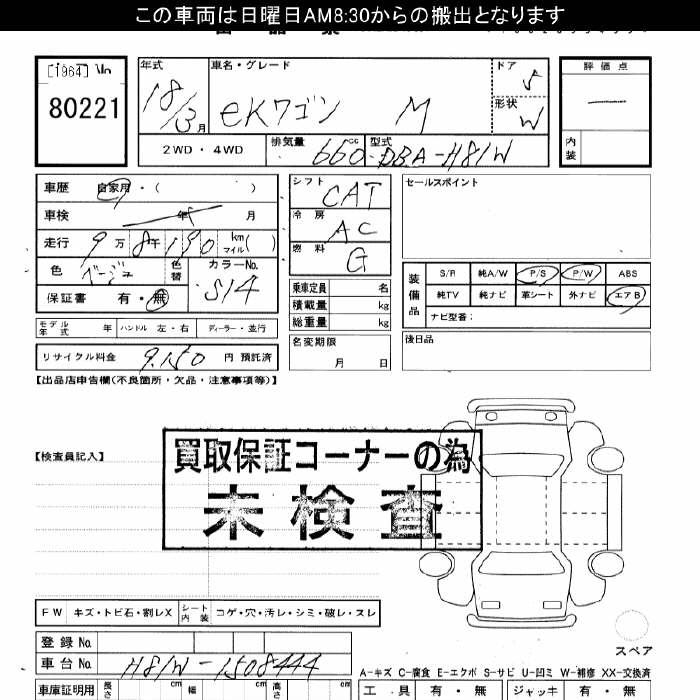 この車両は日曜日AM8:30からの搬出となります
[1964]
80221
年式 18/3月
車名・グレード eKワゴン M
ドア 5
形状 W
評価点
内装
2WD・4WD
排気量 660cc
型式 DBA-H81W
車歴 自家用・( )
車検 年 月
走行 9万8千190 km マイル( )
色 ベージュ
色替
カラーNo. S14
保証書 有・無
シフト CAT
冷房 AC
燃料 G
乗車定員 名
積載量 kg
総重量 kg
セールスポイント
装備品
S/R 純A/W P/S P/W ABS
純TV 純ナビ 革シート 外ナビ エアB
ナビ型番:
モデル年式 年 ハンドル 左・右 ディーラー・並行
リサイクル料金 9,150 円 預託済
名変期限 月 日
後日品
【出品店申告欄(不良箇所・欠品・注意事項等)】
【検査員記入】
買取保証コーナーの為
未検査
FW キズ・トビ石・割レX シート内装 コゲ・穴・汚レ・シミ・破レ・スレ
スペア
登録No
車台No H81W-1508444
A-キズ C-腐食 E-エクボ S-サビ U-凹ミ W-補修 XX-交換済
車庫証明用 長さ cm 幅 cm 高さ cm
工具 有・無 ジャッキ 有・無